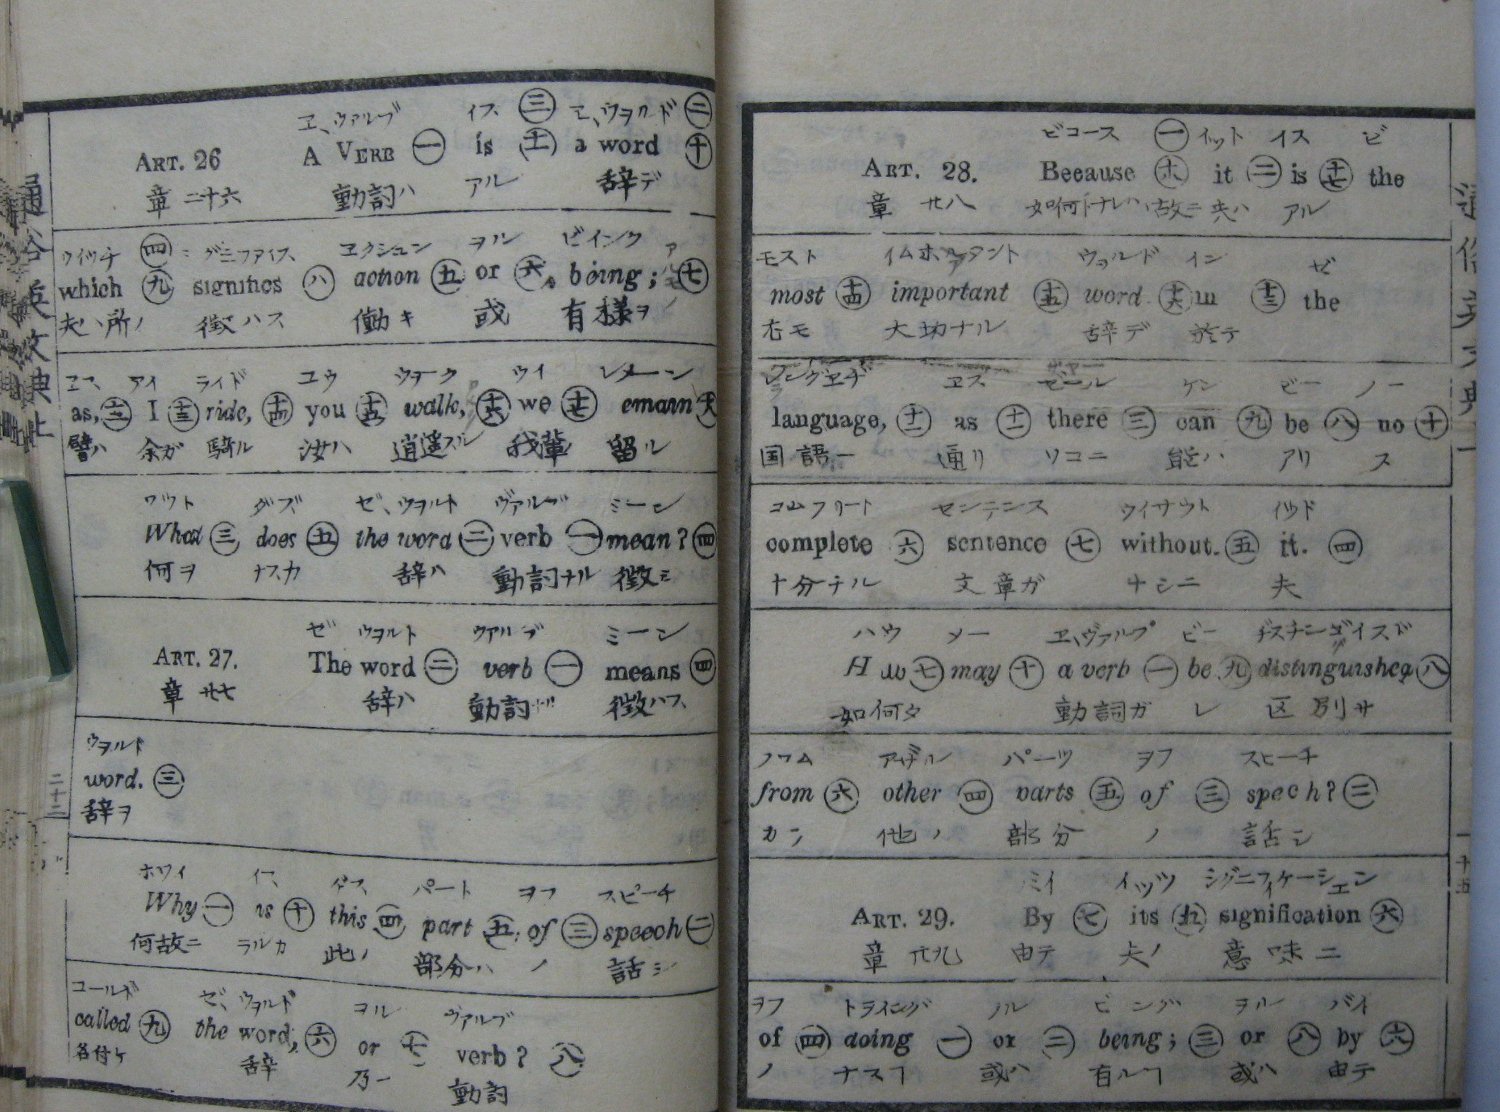 ヱ、ヴァルブ イス ㊂ ヱ、ウヲルド ㊁
ART. 26 A VERB ㊀ is ㊏ a word ㊉
章 二十六 動詞ハ アル 辞デ
ウイツチ ㊃ シグニファイス ヱクシュン ヲル ビインク
which ㊈ signifies ㊇ action ㊄ or ㊅ being; ㊆
夫ハ所ノ 徴ハス 働キ 或 有様ヲ
ヱス アイ ライド ユウ ウヲーク ウイ レメーン
as, I ride, you walk, we emain
譬ハ 余ガ 騎ル 汝ハ 逍遥スル 我輩 留ル
ワット ダズ ゼ、ウヲルト ヴァルブ ミーン
What ㊂ does ㊄ the word ㊁ verb ㊀ mean? ㊃
何ヲ ナスカ 辞ハ 動詞ナル 徴シ
ゼ ウヲルト ヴァルブ ミーン
ART. 27. The word ㊁ verb ㊀ means ㊃
章 廿七 辞ハ 動詞 徴ハス
ウヲルド
word. ㊂
辞ヲ
ホワイ イス ザス パート ヲフ スピーチ
Why ㊀ is ㊉ this ㊃ part ㊄ of ㊂ speech ㊁
何故ニ ラルカ 此ノ 部分ハ ノ 話シ
コールド ゼ、ウヲルド ヲル ヴァルブ
called ㊈ the word, ㊅ or ㊆ verb? ㊇
名付ケ 辞 乃一 動詞
ビコース ㊀ イット イス ゼ
ART. 28. Because it ㊁ is the
章 廿八 如何トナレハ 故ニ 夫ハ アル
モスト イムホルタント ウヲルド イン ゼ
most important word in the
尤モ 大切ナル 辞デ 於テ
ラングヱヂ ヱス ゼール ケン ビー ノー
language, as there ㊂ can ㊈ be ㊇ no ㊉
国語一 通リ ソコニ 能ハ アリ ス
コムフリート センテンス ウイサウト イット
complete ㊅ sentence ㊆ without. ㊄ it. ㊃
十分ナル 文章ガ ナシニ 夫
ハウ メー ヱ、ヴァルブ ビー ヂスチンゴイスド
H w ㊆ may ㊉ a verb ㊀ be ㊈ distinguished ㊇
如何タ 動詞ガ レ 区別サ
フロム アザル パーツ ヲフ スピーチ
from ㊅ other ㊃ parts ㊄ of ㊂ spech? ㊁
カン 他ノ 部分 ノ 話シ
バイ イッツ シグニフィケーシェン
ART. 29. By ㊆ its ㊄ signification ㊅
章 廿九 由テ 夫ノ 意味ニ
ヲフ ヲル ビング ヲル バイ
of ㊃ doing ㊀ or ㊁ being; ㊂ or ㊇ by ㊅
ノ ナスヿ 或ハ 有ルヿ 或ハ 由テ